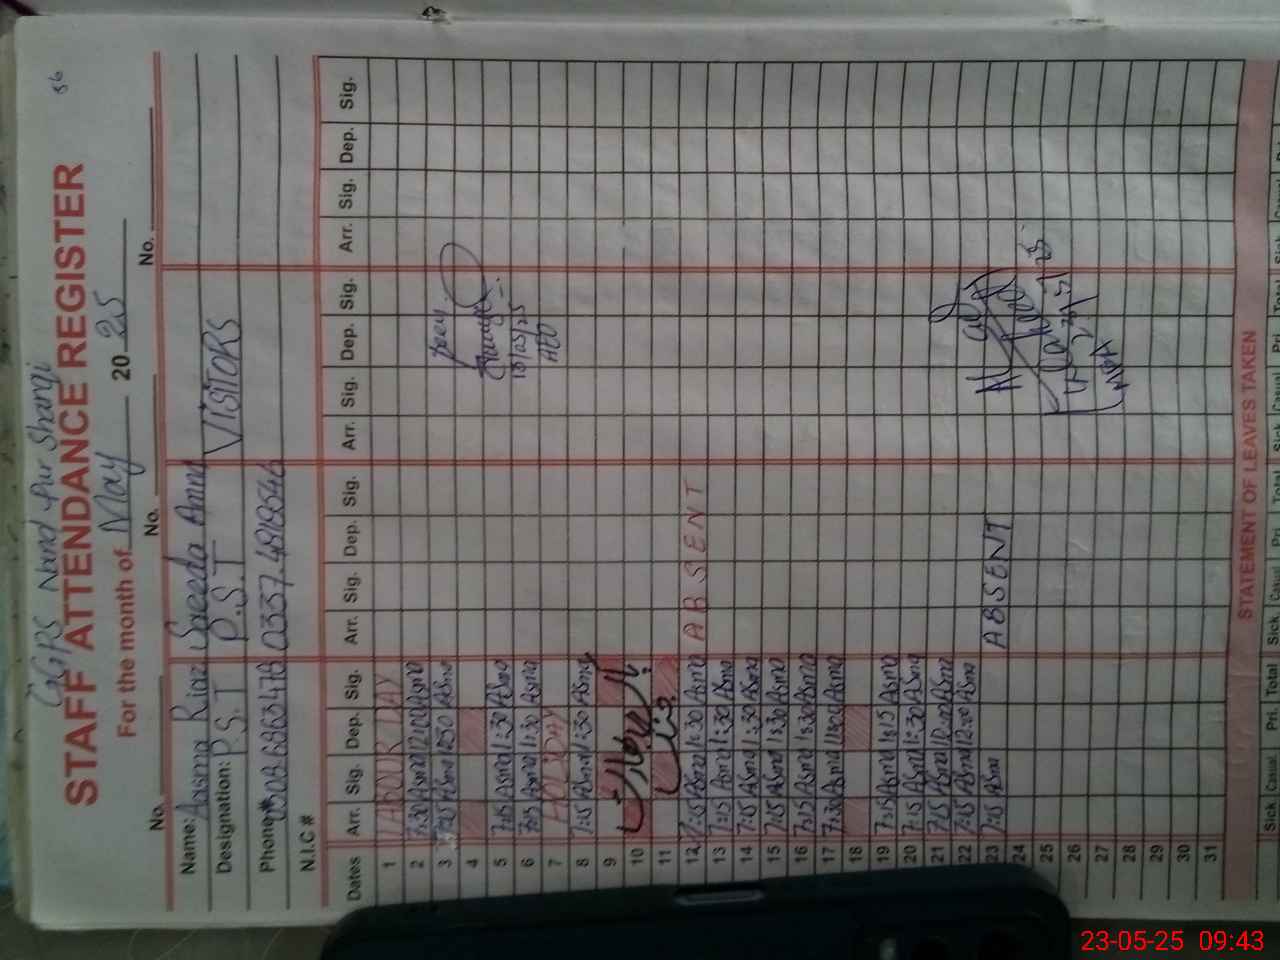 GGPS Nand Pur Sharqi
56
STAFF ATTENDANCE REGISTER
For the month of May 20 25
No. No. No. No.
Name: Aasma Riaz Saeeda Amna
Designation: P.S.T P.S.T VISITORS
Phone#
N.I.C #
Dates Arr. Sig. Dep. Sig. Arr. Sig. Dep. Sig. Arr. Sig. Dep. Sig. Arr. Sig. Dep. Sig.
1 LABOUR DAY
2 7:30 Asma 12:00 Asma
3 Asma Asma
4
5 7:15 Asma 1:30 Asma
6 7:15 Asma 1:30 Asma
13/05/25
7 HOLIDAY
AEO
8 7:15 Asma 1:30 Asma
9
10
11
12 7:15 Asma 1:30 Asma ABSENT
13 7:15 Asma 1:30 Asma
14 7:15 Asma 1:30 Asma
15 7:15 Asma 1:30 Asma
16 7:15 Asma 1:30 Asma
17 7:30 Asma Asma
18
19 7:15 Asma 1:15 Asma
20 7:15 Asma 1:30 Asma
21 7:15 Asma 12:00 Asma
22 7:15 Asma 12:00 Asma
23 7:15 Asma ABSENT
24
25
26
27
28
29
30
31
STATEMENT OF LEAVES TAKEN
Sick Casual Pri. Total Sick Casual Pri. Total Sick Casual Pri. Total Sick
23-05-25 09:43